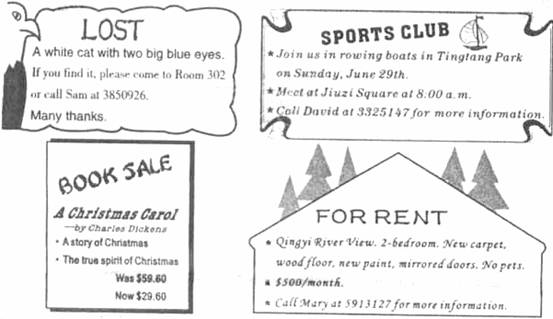 LOST
A white cat with two big blue eyes.
If you find it, please come to Room 302
or call Sam at 3850926.
Many thanks.
SPORTS CLUB
★ Join us in rowing boats in Tingtang Park
on Sunday, June 29th.
★ Meet at Jiuzi Square at 8:00 a.m.
★ Call David at 3325147 for more information.
BOOK SALE
A Christmas Carol
—by Charles Dickens
• A story of Christmas
• The true spirit of Christmas
Was $59.60
Now $29.60
FOR RENT
★ Qingyi River View. 2-bedroom. New carpet,
wood floor, new paint, mirrored doors. No pets.
★ $500/month.
★ Call Mary at 5913127 for more information.